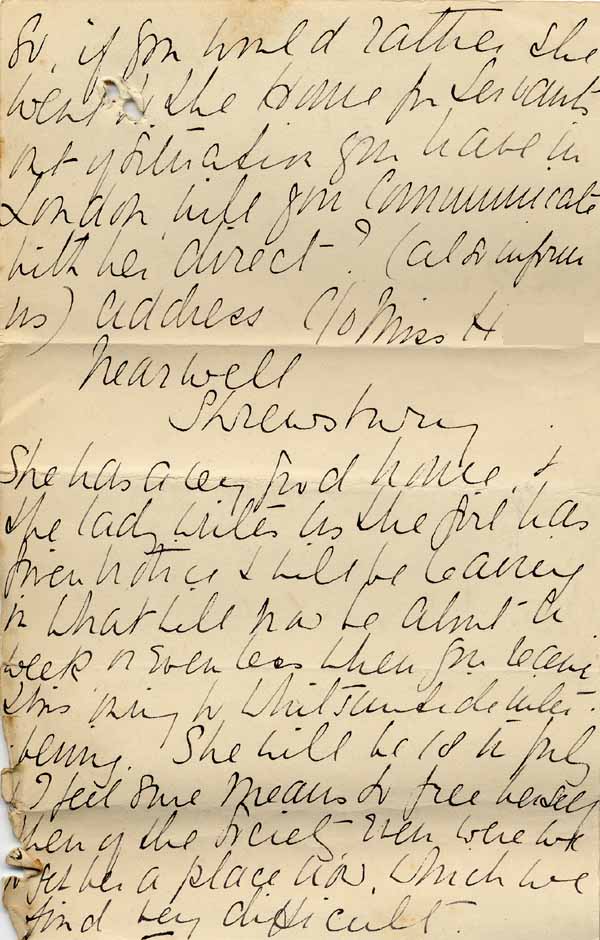 Or, if you would rather she
went to the Home for Servants
out of situation you have in
London will you communicate
with her direct? (also inform
us) address C/o Miss H
Nearwell
Shrewsbury
She has a very good home, &
the lady writes us the girl has
given notice & will be leaving
in what will now be about a
week or even less when you receive
this owing to Whitsuntide inter-
vening. She will be 18 in July
& I feel sure means to free herself
then of the Society even were we
to get her a place now, which we
find very difficult.